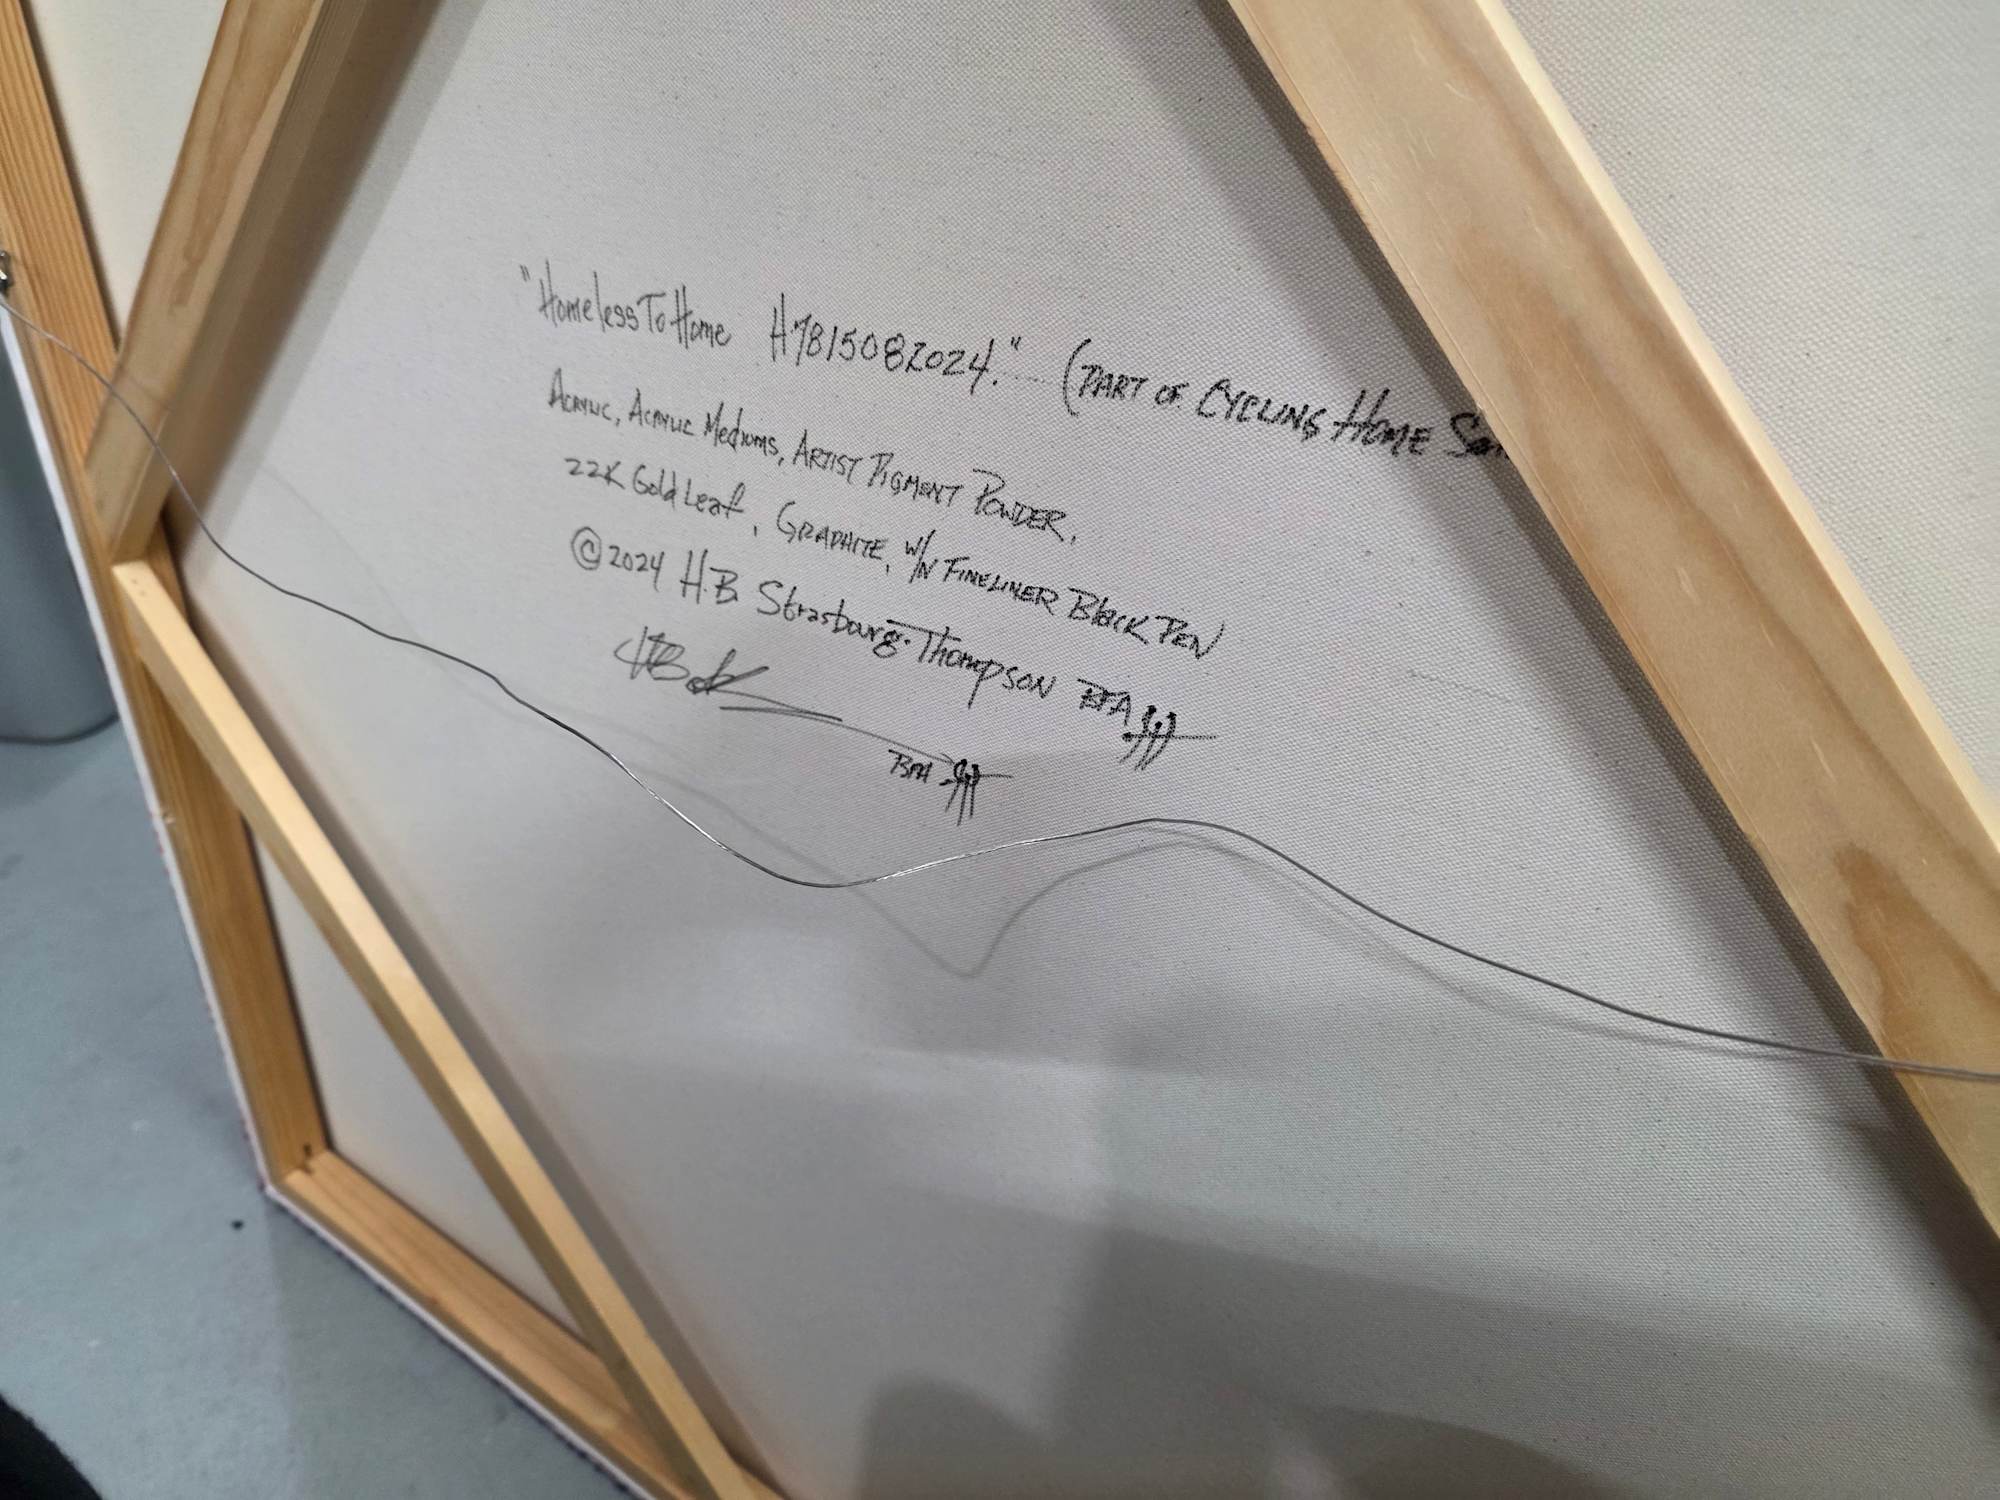 "Homeless To Home H7815082024." (PART OF CYCLING HOME
ACRYLIC, ACRYLIC MEDIUMS, ARTIST PIGMENT POWDER,
22K Gold Leaf, GRAPHITE, W/N FINELINER BLACK PEN
©2024 H.B. Strasbourg-Thompson BFA
BFA